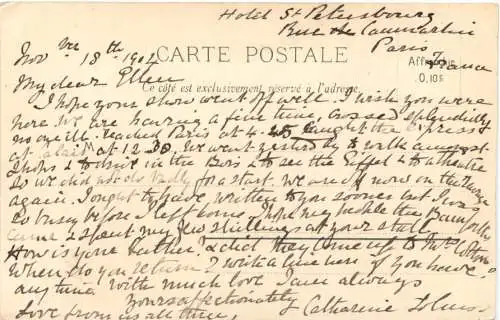 Hotel St Petersbourg
Rue de Caumartin
Paris
France
Nov bre 18th 1904
CARTE POSTALE
Affr
0,10s
My dear Ellen
Ce côté est exclusivement réservé à l'adresse
I hope your show went off well. I wish you were
here. We are having a fine time, crossed splendidly
no one ill. reached Paris at 4. caught the express
at Calais at 12.30. We went yesterday to walk amongst
shops & to drive in the Bois & to see the Eiffel & to theatre
so we did not do badly for a start. We are off now on the
again. I ought to have written to you sooner but I was
so busy before I left home. I hope my the
came & spent my few shillings at your stall.
How is your father? & did they come up to Mrs
When do you return? write a line here if you have
anything with much love I am always
Yours affectionately
Love from us all three, Catharine